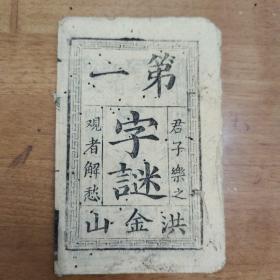 第一
君子樂之
字謎
观者解愁
洪金山